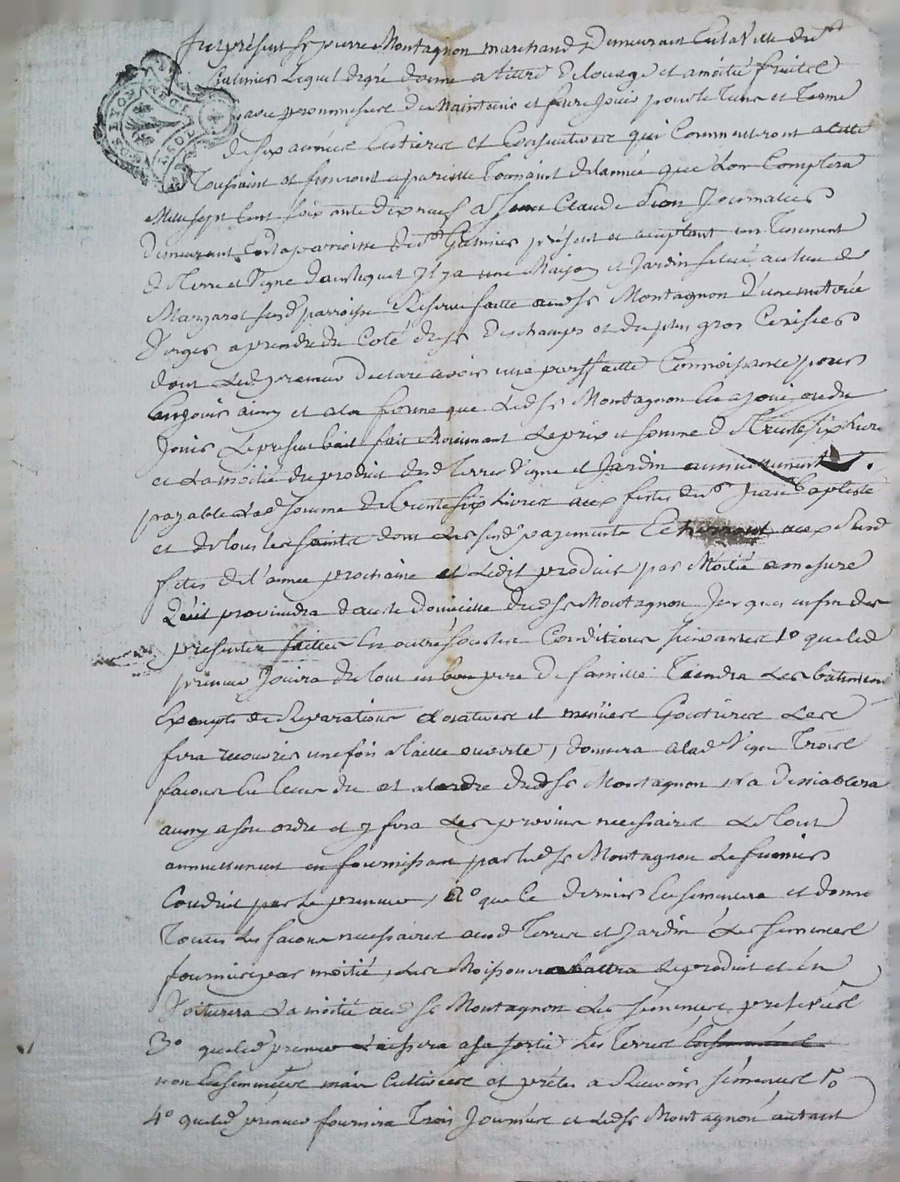 fut présent Sr pierre Montagnon marchand Demeurant En la Ville de St
Galmier Lequel de gré donne a titre de louage et a moitié fruitcl
avec prommesse de Maintenir et faire Jouir pour le Tems et Terme
de six années Entieres et Consecutives qui Commenceront a cette
Toussaint et finiront a pareille Toussaint de l'année que L'on Comptera
Mille sept Cent soixante dix neuf a Claude Journalier
Demeurant En la parroisse de St Galmier présent et acceptant un Tenement
de Terre et Vigne dans lequel Il y a une Maison et Jardin situé au lieu de
susd parroisse Reserve faitte audt Sr Montagnon d'une
D'orges a prendre du Coté de Sr Deschamps et du plus gros Cerisier
dont Led preneur Declare avoir une parffaitte Connoissance pour
En jouir ainsy et a la forme que Ledt Sr Montagnon En a joui ou du
Jouir Le présent bail fait Moienant Le prix et somme de Trente six livres
et La moitié du produit desd Terres Vigne et Jardin annuellement
payable Lad somme de Trente six Livres aux fetes de St Jean Baptiste
et de tous les saints dont Les susd payements aux susd
fetes de l'année prochaine et Ledt produit par Moitié a mesure
Qu'il proviendra dans le domicille dudt Sr Montagnon Jusques a fin des
presentes faittes En outre sous les Conditions suivantes 1º que led
preneur Jouira du tout en bon pere de famille Tiendra Les bâtiments
Exempts de Reparations Locatives et menües Goutieres Les
fera recouvrir une fois a taille ouverte, donnera a lad Vigne Trois
facons En tems du et a l'ordre dudt Sr Montagnon
aussy a son ordre et y fera Les provins necessaires Le tout
annuellement en fournissant par ledt Sr Montagnon Le fumier
Conduit par Le preneur, 2º que Ce dernier Ensemencera et donnera
Toutes Les facons necessaires auxd Terres et Jardin Les semences
fournies par moitié, Les Moissonnera battra Le produit et En
Voiturera La moitié audt Sr Montagnon Les semences prelevées
3º que led preneur Laissera a sa sortie Les Terres
non Ensemencées mais Cultivées et prêtes a Recevoir semences
4º que led preneur fournira Trois Journées et Ledt Sr Montagnon autant